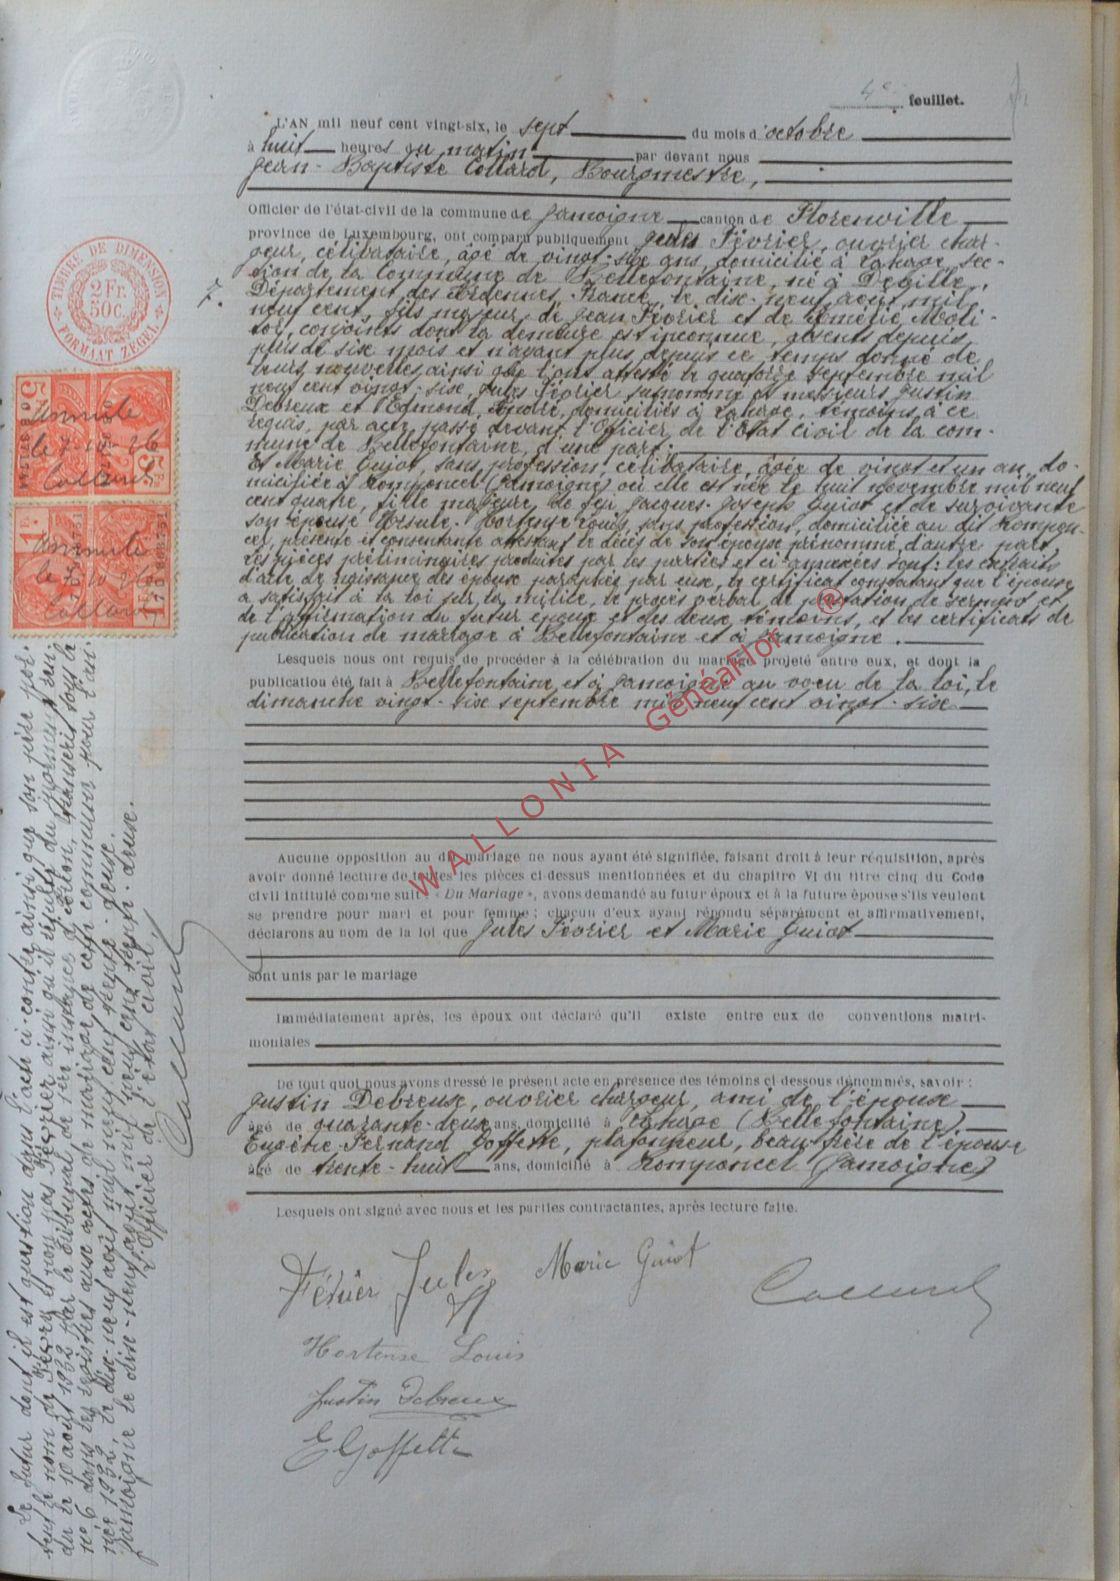 4e feuillet.
L'AN mil neuf cent vingt-six, le sept du mois d'octobre
à huit heures du matin par devant nous
Jean-Baptiste Collard, Bourgmestre,
Officier de l'état-civil de la commune de Jamoigne canton de Florenville
province de Luxembourg, ont comparu publiquement Jules Février, ouvrier char-
geur, célibataire, âgé de vingt-six ans, domicilié à Lahage, sec-
tion de la Commune de Bellefontaine, né à Deville,
Département des Ardennes, France, le dix-neuf août mil
neuf cent, fils majeur de Jean Février et de Moli-
tor, conjoints dont la demeure est inconnue, absents depuis
plus de six mois et n'ayant plus depuis ce temps donné de
leurs nouvelles ainsi que l'ont attesté le quatorze septembre mil
neuf cent vingt-six, Jules Février surnommé et messieurs Justin
Debreux et Edmond André, domiciliés à Lahage, témoins à ce
requis, par acte passé devant l'Officier de l'Etat civil de la com-
mune de Bellefontaine, d'une part;
Et Marie Guiot, sans profession, célibataire, âgée de vingt et un an, do-
micilié à Romponcel (Jamoigne) où elle est née le huit novembre mil neuf
cent quatre, fille majeure de feu Jacques-Joseph Guiot et de survivante
son épouse Ursule-Hortense Louis, sans profession, domiciliée au dit Rompon-
cel, présente et consentante attestant le décès de son époux prénommé, d'autre part,
Les pièces préliminaires produites par les parties et ci-annexées sont: les extraits
d'acte de naissance des époux paraphés par eux, le certificat constatant que l'époux
a satisfait à la loi sur la milice, le procès verbal de prestation de serment et
de l'affirmation du futur époux et des deux témoins, et les certificats de
publication de mariage à Bellefontaine et à Jamoigne.
Lesquels nous ont requis de procéder à la célébration du mariage projeté entre eux, et dont la
publication été fait à Bellefontaine et à Jamoigne au voeu de la loi, le
dimanche vingt-six septembre mil neuf cent vingt-six
Aucune opposition au dit mariage ne nous ayant été signifiée, faisant droit à leur réquisition, après
avoir donné lecture de toutes les pièces ci-dessus mentionnées et du chapitre VI du titre cinq du Code
civil intitulé comme suit: « Du Mariage », avons demandé au futur époux et à la future épouse s'ils veulent
se prendre pour mari et pour femme; chacun d'eux ayant répondu séparément et affirmativement,
déclarons au nom de la loi que Jules Février et Marie Guiot
sont unis par le mariage
Immédiatement après, les époux ont déclaré qu'il existe entre eux de conventions matri-
moniales
De tout quoi nous avons dressé le présent acte en présence des témoins ci-dessous dénommés, savoir:
Justin Debreux, ouvrier chargeur, ami de l'épouse
âgé de quarante-deux ans, domicilié à Lahage (Bellefontaine),
Eugène-Fernand Goffette, plafonneur, beau-frère de l'épouse
âgé de trente-huit ans, domicilié à Romponcel (Jamoigne)
Lesquels ont signé avec nous et les parties contractantes, après lecture faite.
Février Jules
Marie Guiot
Collard
Hortense Louis
Justin Debreux
E Goffette
7.
TIMBRE DE DIMENSION
2 Fr.
50c.
FORMAAT ZEGEL
Annulé
le 7-10-26
Collard
Annulé
le 7-10-26
Collard
Le futur dont il est question dans l'acte ci-contre ainsi que son père por-
tent le nom de Févry et non pas Février ainsi qu'il résulte du jugement ren-
du le 10 août 1932 par le tribunal de 1ère instance d'Arlon, transcrit sous le
n° 6 dans les registres aux actes de mariage de cette commune pour l'an-
née 1932, le dix-neuf août mil neuf cent trente-deux.
Jamoigne le dix-neuf août mil neuf cent trente-deux.
L'Officier de l'état civil,
Collard
WALLONIA GénéaFlor ®